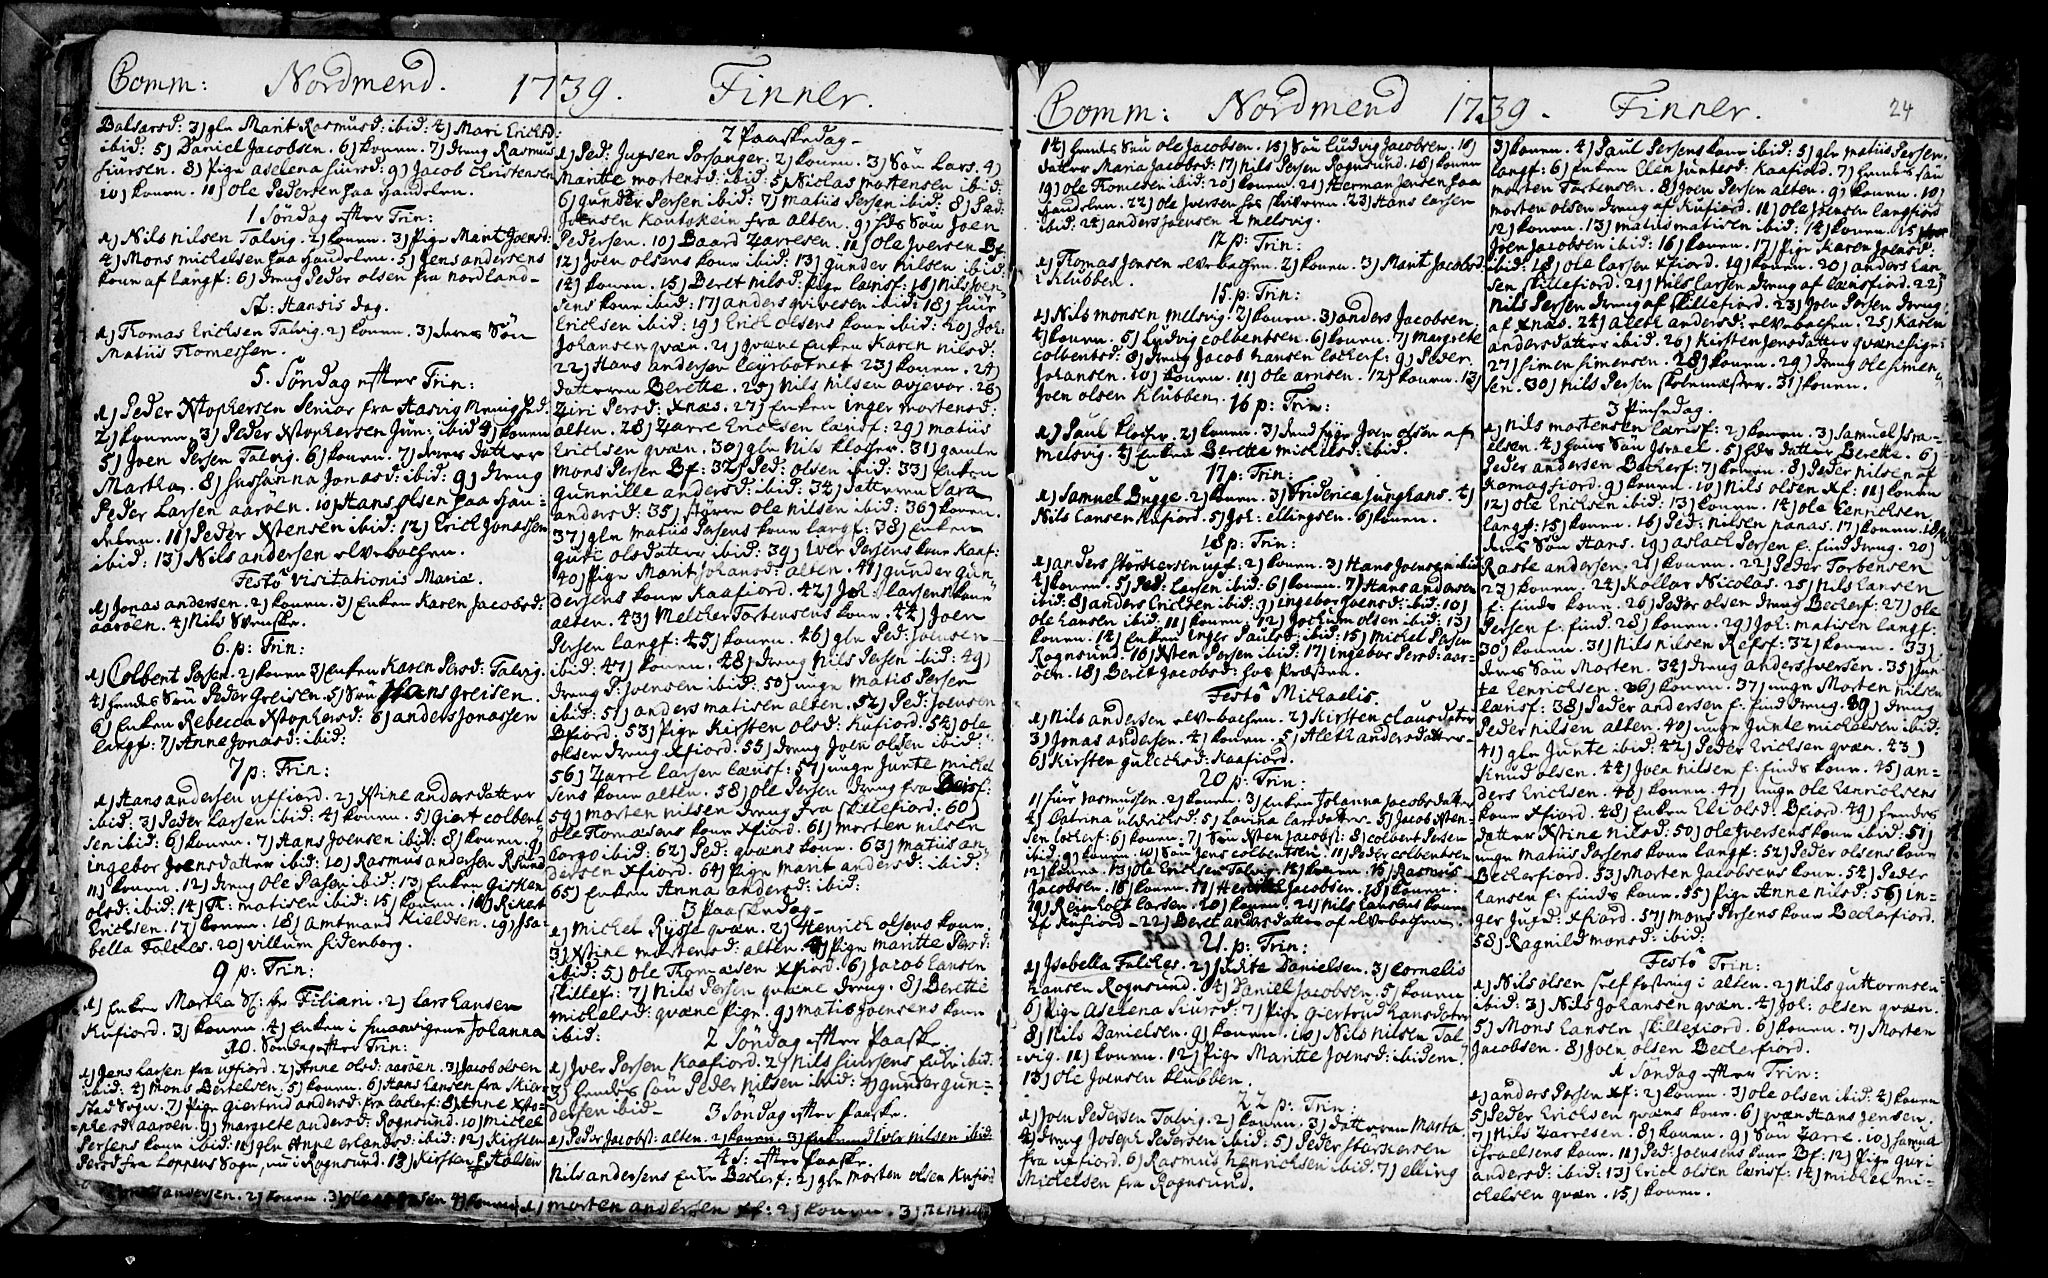 Comm: Nordmend. 1739. Finner.
Balsars: 3) gln Marit Rasmusd: ibid: 4) Mari Ericksd:
ibid: 5) Daniel Jacobsen. 6) konen. 7) dreng Rasmus
Siursen. 8) Pige Asekena Siursd: 9) Jacob Christensen
10) konen. 11) Ole Pedersen paa handelen.
1 Söndag efter Trin:
1) Nils Nilsen Talvig. 2) konen. 3) Pige Marit Joensd:
4) Mons Michelsen paa handelen. 5) Jens Andersens
kone af Langf: 6) dreng Peder Olsen fra Nordland-
St: Hansis dag.
1) Thomas Ericksen Talvig. 2) konen. 3) deres Sön
Matiis Thomessen.
5. Söndag efter Trin:
1) Peder Xstophersen Senior fra Hasvig
2) konen. 3) Peder Xstophersen Jun: ibid 4) konen
5) Joen Persen Talvig. 6) konen. 7) deres datter
Martha. 8) Sussanna Jonasd: ibid: 9) dreng
Peder Larsen aaröen. 10) Hans Olsen paa han-
delen. 11) Peder Xstensen ibid: 12) Erick Jonassen
ibid: 13) Nils Andersen elvebacken.
Festo Visitationis Mariæ.
1) Jonas Andersen. 2) konen. 3) Enken Karen Jacobsd:
aaröen. 4) Nils Svenske.
6. p: Trin:
1) Colbent Persen. 2) konen 3) Enken Karen Persd: Talvig.
4) hendes Sön Peder Greisen. 5) Sön Hans Greisen.
6) Enken Rebecca Xstophersd: 6) Anders Jonassen
Langf: 7) Anne Jonasd: ibid:
7 p: Trin:
1) Hans Andersen uffiord. 2) Xstine Andersdatter
ibid: 3) Peder Larsen ibid: 4) konen. 5) Giert Colbent
sen ibid: 6) konen. 7) Hans Joensen ibid: 8) konen. 9)
Ingebor Joensdatter ibid: 10) Rasmus Andersen Rsund
11) konen. 12) dreng Ole Persen ibid: 13) Enken Gisken
Olsd: ibid: 14) H: Matisen ibid: 15) konen. 16) Rikert
Ericksen. 17) konen. 18) Amtmand Kieldsen. 19) Isa-
bella Falckes. 20) Villum Hidenborg.
9 p: Trin:
1) Enken Martha Sl: hr Filiani. 2) Lars Hansen
Kufiord. 3) konen. 4) Enken i Smaavigene Johanna
10. Söndag efter Trin:
1) Jens Larsen fra uffiord. 2) Anne Olsd: aaröen. 3) Jacob Olsen
ibid: 4) Mons Bertelsen. 5) konen. 6) Hans Hansen fra Skier-
stad Sogn. 7) Pige Giertrud Andersd: fra Lockerf: 8) Anne Xsto-
phersd: aaröen. 9) Margrete Andersd: Rognsund. 10) Michel
Persens kone ibid: 11) gln Anne Erlandsd: ibid: 12) Kirsten
Persd fra Loppens Sogn, nu i Rognsund. 13) Kirsten
Andersen. 2) konen. 3) 4) konen
2 Paaskedag-
1) Ped: Jupsen Porsanger. 2) konen. 3) Sön Lars. 4)
Maritte Mortensd: ibid: 5) Nicolas Mortensen ibid:
6) Gunder Persen ibid: 7) Matiis Persen ibid: 8) Ped:
Joensen Kautokein fra Alten. 9) hds Sön Joen
Pedersen. 10) Baard Zarresen. 11) Ole Iversen Bf.
12) Joen Olsens kone ibid: 13) Gunder Nilsen ibid:
14) konen. 15) Beret Nilsd: Pige Lansf: 16) Nils Joen-
sens kone ibid: 17) Anders Grivesen ibid: 18) Siur
Ericksen ibid: 19) Erick Olsens kone ibid: 20) Joh:
Johansen qvæn. 21) qvæne Enken Karen Nilsd:
22) Hans Andersen Leyrbotnet 23) konen. 24)
datteren Berette. 25) Nils Nilsen avjevor. 26)
Ziri Persd: Xnæs. 27) Enken Inger Mortensd:
Alten. 28) Zarre Ericksen Lansf: 29) Matiis
Ericksen qvæn. 30) gln Nils Klocker. 31) gamle
Mons Persen Bf: 32) Ped: Olsen ibid: 33) Enken
Gunnille Andersd: ibid: 34) datteren Sara
Andersd: 35) större Ole Nilsen ibid: 36) konen.
37) gln Matiis Persens kone Langf: 38) Enken
Guri Olsdatter ibid: 39) Iver Persens kone Kaaf:
40) Pige Marit Johansd: Alten. 41) Gunder Gun-
dersens kone Kaafiord. 42) Joh: Larsens kone
Alten. 43) Melcher Torbensens kone. 44) Joen
Persen Langf: 45) konen. 46) gln Ped: Joensen
ibid: 47) konen. 48) dreng Nils Persen ibid: 49)
dreng P. Joensen ibid: 50) unge Matis Persen
ibid: 51) Anders Matisen Alten. 52) Ped: Joensen
Bfiord: 53) Pige Kirsten Olsd: Kufiord: 54) Ole
Olsen dreng Xfiord. 55) dreng Joen Olsen ibid:
56) Zarre Larsen Lansf: 57) unge Junte Michel
sens kone Alten. 58) Ole Persen dreng fra Borsf:
59) Morten Nilsen dreng fra Skillefiord. 60)
Ole Thomæsens kone Xfiord. 61) Morten Nilsen
Corgo ibid: 62) Ped: qvæns kone. 63) Matiis An-
dersen Xfiord. 64) Pige Marit Andersd: ibid:
65) Enken Anna Andersd: ibid:
3 Paaskedag-
1) Michel Rysse qvæn. 2) Henrick Olsens kone.
3) Xstine Mortensd: Alten. 4) Pige Maritte Persd:
ibid: 5) Ole Thomæsen Xfiord. 6) Jacob Hansen
Skillef: 7) Nils Persen qvæne dreng. 8) Berette
Michelsd: qvæne Pige. 9) Matis Joensens kone
ibid:
2 Söndag efter Paaske.
1) Iver Persen Kaafiord. 2) Nils Siursens Enke ibid.
3) hendes Sön Peder Nilsen ibid: 4) Gunder Gun-
dersen ibid-
3 Söndag efter Paaske.
1) Peder Jacobs: Alten. 2) konen. 3) Enkemand Iver Nilsen ibid:
4 S: efter Paaske.
Nils Andersens Enke Beckerf: 2) gln Morten Olsen Kufiord
1) Morten Andersen Xf: 2) konen. 3)
Comm: Nordmend 1739. Finner. 24
14) hendes Sön Ole Jacobsen. 15) Sön Ludvig Jacobsen. 16)
datter Maria Jacobsd: 17) Nils Persen Rognsund. 18) konen
19) Ole Thomesen ibid: 20) konen. 21) Herman Jensen paa
handelen. 22) Ole Iversen hos Skriveren. 23) Hans Larsen
ibid: 24) Anders Joensen i Melsvig.
12 p: Trin:
1) Thomas Jensen elvebacken. 2) konen. 3) Marit Jacobsd:
i Klubben.
15. p: Trin:
1) Nils Monsen Melsvig. 2) konen. 3) Anders Jacobsen
4) konen. 5) Ludvig Colbentsen. 6) konen. 7) Margrete
Colbentsd: 8) dreng Jacob Hansen Lockerf: 9) Peder
Johansen. 10) konen. 11) Ole Arnsen. 12) konen. 13)
Joen Olsen Klubben.
16 p: Trin:
1) Paul Klocker. 2) konen. 3) Joen Olsen af
Melsvig. 4) Enken Berette Michelsd: ibid.
17 p: Trin:
1) Samuel Bugge. 2) konen. 3) Friderica Junghans. 4)
Nils Hansen Kufiord. 5) Joh: Ellingsen. 6) konen.
18 p: Trin:
1) Anders Störckersen uff: 2) konen. 3) Hans Joensen ibid
4) konen. 5) Ped: Larsen ibid: 6) konen. 7) Hans Andersen
ibid: 8) Anders Ericksen ibid: 9) Ingebor Joensd: ibid: 10)
Ole Hansen ibid: 11) konen. 12) Jockum Olsen ibid: 13)
konen. 14) Enken Inger Paulsd: ibid: 15) Michel Persen
Rognsund. 16) Xsten Persen ibid: 17) Ingebor Persd: aar-
öen. 18) Beret Jacobsd: hos Præsten.
Festo Michaelis.
1) Nils Andersen elvebacken. 2) Kirsten Clausdatter
3) Jonas Andersen. 4) konen. 5) Aleth Andersdatter.
6) Kirsten Gulichsd: Kaafiord.
20 p: Trin:
1) Siur Rasmussen. 2) konen. 3) Enken Johanna Jacobsdatter
4) Catrina Uldricksd: 5) Lavina Larsdatter. 5) Jacob Xsten-
sen Lockerf: 6) konen. 7) Sön Xsten Jacobs: 8) Colbent Persen
ibid: 9) konen. 10) Sön Jens Colbentsen. 11) Peder Colbentsen
12) kona. 13) Ole Ericksen Talvig. 14) konen. 15) Rasmus
Jacobsen. 16) konen. 17) Henrik Jacobsen. 18) konen.
19) Reinholt Larsen. 20) konen. 21) Nils Hansens kone
af Kufiord- 22) Beret Andersdatter af elvebacken.
21. p: Trin:
1) Isabella Falches. 2) Jiditz Danielsen. 3) Cornelis
Hansen Rognsund. 4) Daniel Jacobsen. 5) konen
6) Pige Asekena Siursd: 7) Pige Giertrud Hansdater
8) Nils Danielsen. 9) konen. 10) Nils Nilsen Tal-
vig. 11) konen. 12) Pige Maritte Joensd: ibidem.
13) Ole Joensen Klubben.
22 p: Trin:
1) Joen Pedersen Talvig. 2) konen. 3) datteren Marta
4) dreng Joseph Pedersen ibid: 5) Peder Störckersen
fra uffiord. 6) Rasmus Henricksen ibid: 7) Elling
Michelsen fra Rognsund.
3) konen. 4) Paul Persens kone ibid: 5) gln Matiis Persen
Langf: 6) Enken Elen Juntesd: Kaafiord. 7) hendes Sön
Morten Torbensen. 8) Joen Persen Alten. 9) konen. 10)
Morten Olsen dreng af Kufiord. 11) Ole Joensen Langfiord
12) konen. 13) Matiis Matisen ibid: 14) konen. 15)
Joen Jacobsen ibid: 16) konen. 17) Pige Karen Joensd:
ibid: 18) Ole Larsen Xfiord. 19) konen. 20) Anders Han-
sen Skillefiord. 21) Nils Larsen dreng af Lansfiord. 22)
Nils Persen dreng af Skillefiord. 23) Joen Persen dreng
af Xnæs. 24) Aleth Andersd: elvebacken. 25) Karen
Andersdatter ibid: 26) Kirsten Jensdatter qvæne Pige:
27) Simen Simensen. 28) konen. 29) dreng Ole Simen-
sen. 30) Nils Persen Skolemester. 31) konen.
3 Pinsedag.
1) Nils Mortensen Lansf: 2) konen. 3) Samuel Isra-
elsen. 4) hans Sön Israel. 5) hds datter Berette. 6)
Peder Andersen Beckerf: 7) konen. 8) Peder Nilsen af
Komagfiord. 9) konen. 10) Nils Olsen Xf: 11) konen
12) Ole Ericksen ibid: 13) konen. 14) Ole Henricksen
Langf: 15) konen. 16) Ped: Nilsen Panas. 17) konen. 18)
deres Sön Hans. 19) Aslach Persen f: find dreng. 20)
Raste Andersen. 21) konen. 22) Peder Torbensen
23) konen. 24) Kollar Nicolas. 25) Nils Hansen
f: finds kone. 26) Peder Olsen dreng Beckerf: 27) Ole
Persen f: find. 28) konen. 29) Joh: Matisen Langf:
30) konen. 31) Nils Nilsen Refsf: 32) konen. 33)
deres Sön Morten. 34) dreng Anders Iversen. 35) Jun-
te Henricksen. 36) konen. 37) unge Morten Nilsen
Lansf: 38) Peder Andersen f: find dreng. 39) dreng
Peder Nilsen Alten. 40) unge Junte Michelsen ibid:
41) gln Junte ibid: 42) Peder Ericksen qvæn. 43)
Knud Olsen. 44) Joen Nilsen f: finds kone. 45) An-
ders Ericksen. 46) konen. 47) unge Ole Henricksens
kone Xfiord. 48) Enken Eli Olsd: Bfiord. 49) hendes
datter Xstine Nilsd: 50) Ole Iversens kone ibid: 51)
unge Matiis Persens kone Langf: 52) Peder Olsens kone
Beckerfiord. 53) Morten Jacobsens kone. 54) Peder
Hansen f: finds kone. 55) Pige Anne Nilsd: 56) In-
ger Jugd: Xfiord. 57) Mons Persens kone Beckerfiord.
58) Ragnild Monsd: ibid:
Festo Trin:
1) Nils Olsen i Alten. 2) Nils Guttormsen
ibid: 3) Nils Johansen qvæn. 4) Joh: Olsen qvæn.
5) Mons Hansen Skillefiord. 6) konen. 7) Morten
Jacobsen. 8) Joen Olsen Beckerfiord.
1 Söndag efter Trin:
1) Anders Persen Xf: 2) konen. 3) Ole Olsen ibid: 4) konen
5) Peder Ericksen qvæns kone. 6) qvæn Hans Jensen.
7) Nils Zarresen. 8) konen. 9) Sön Zarre. 10) Samuel
Israelsens kone. 11) Ped: Joensens kone Bf: 12) Pige Guri
Andersd: ibid: 13) Erick Olsen Lansf: 14) Michel Mi-
chelsen qvæn. 15) konen.